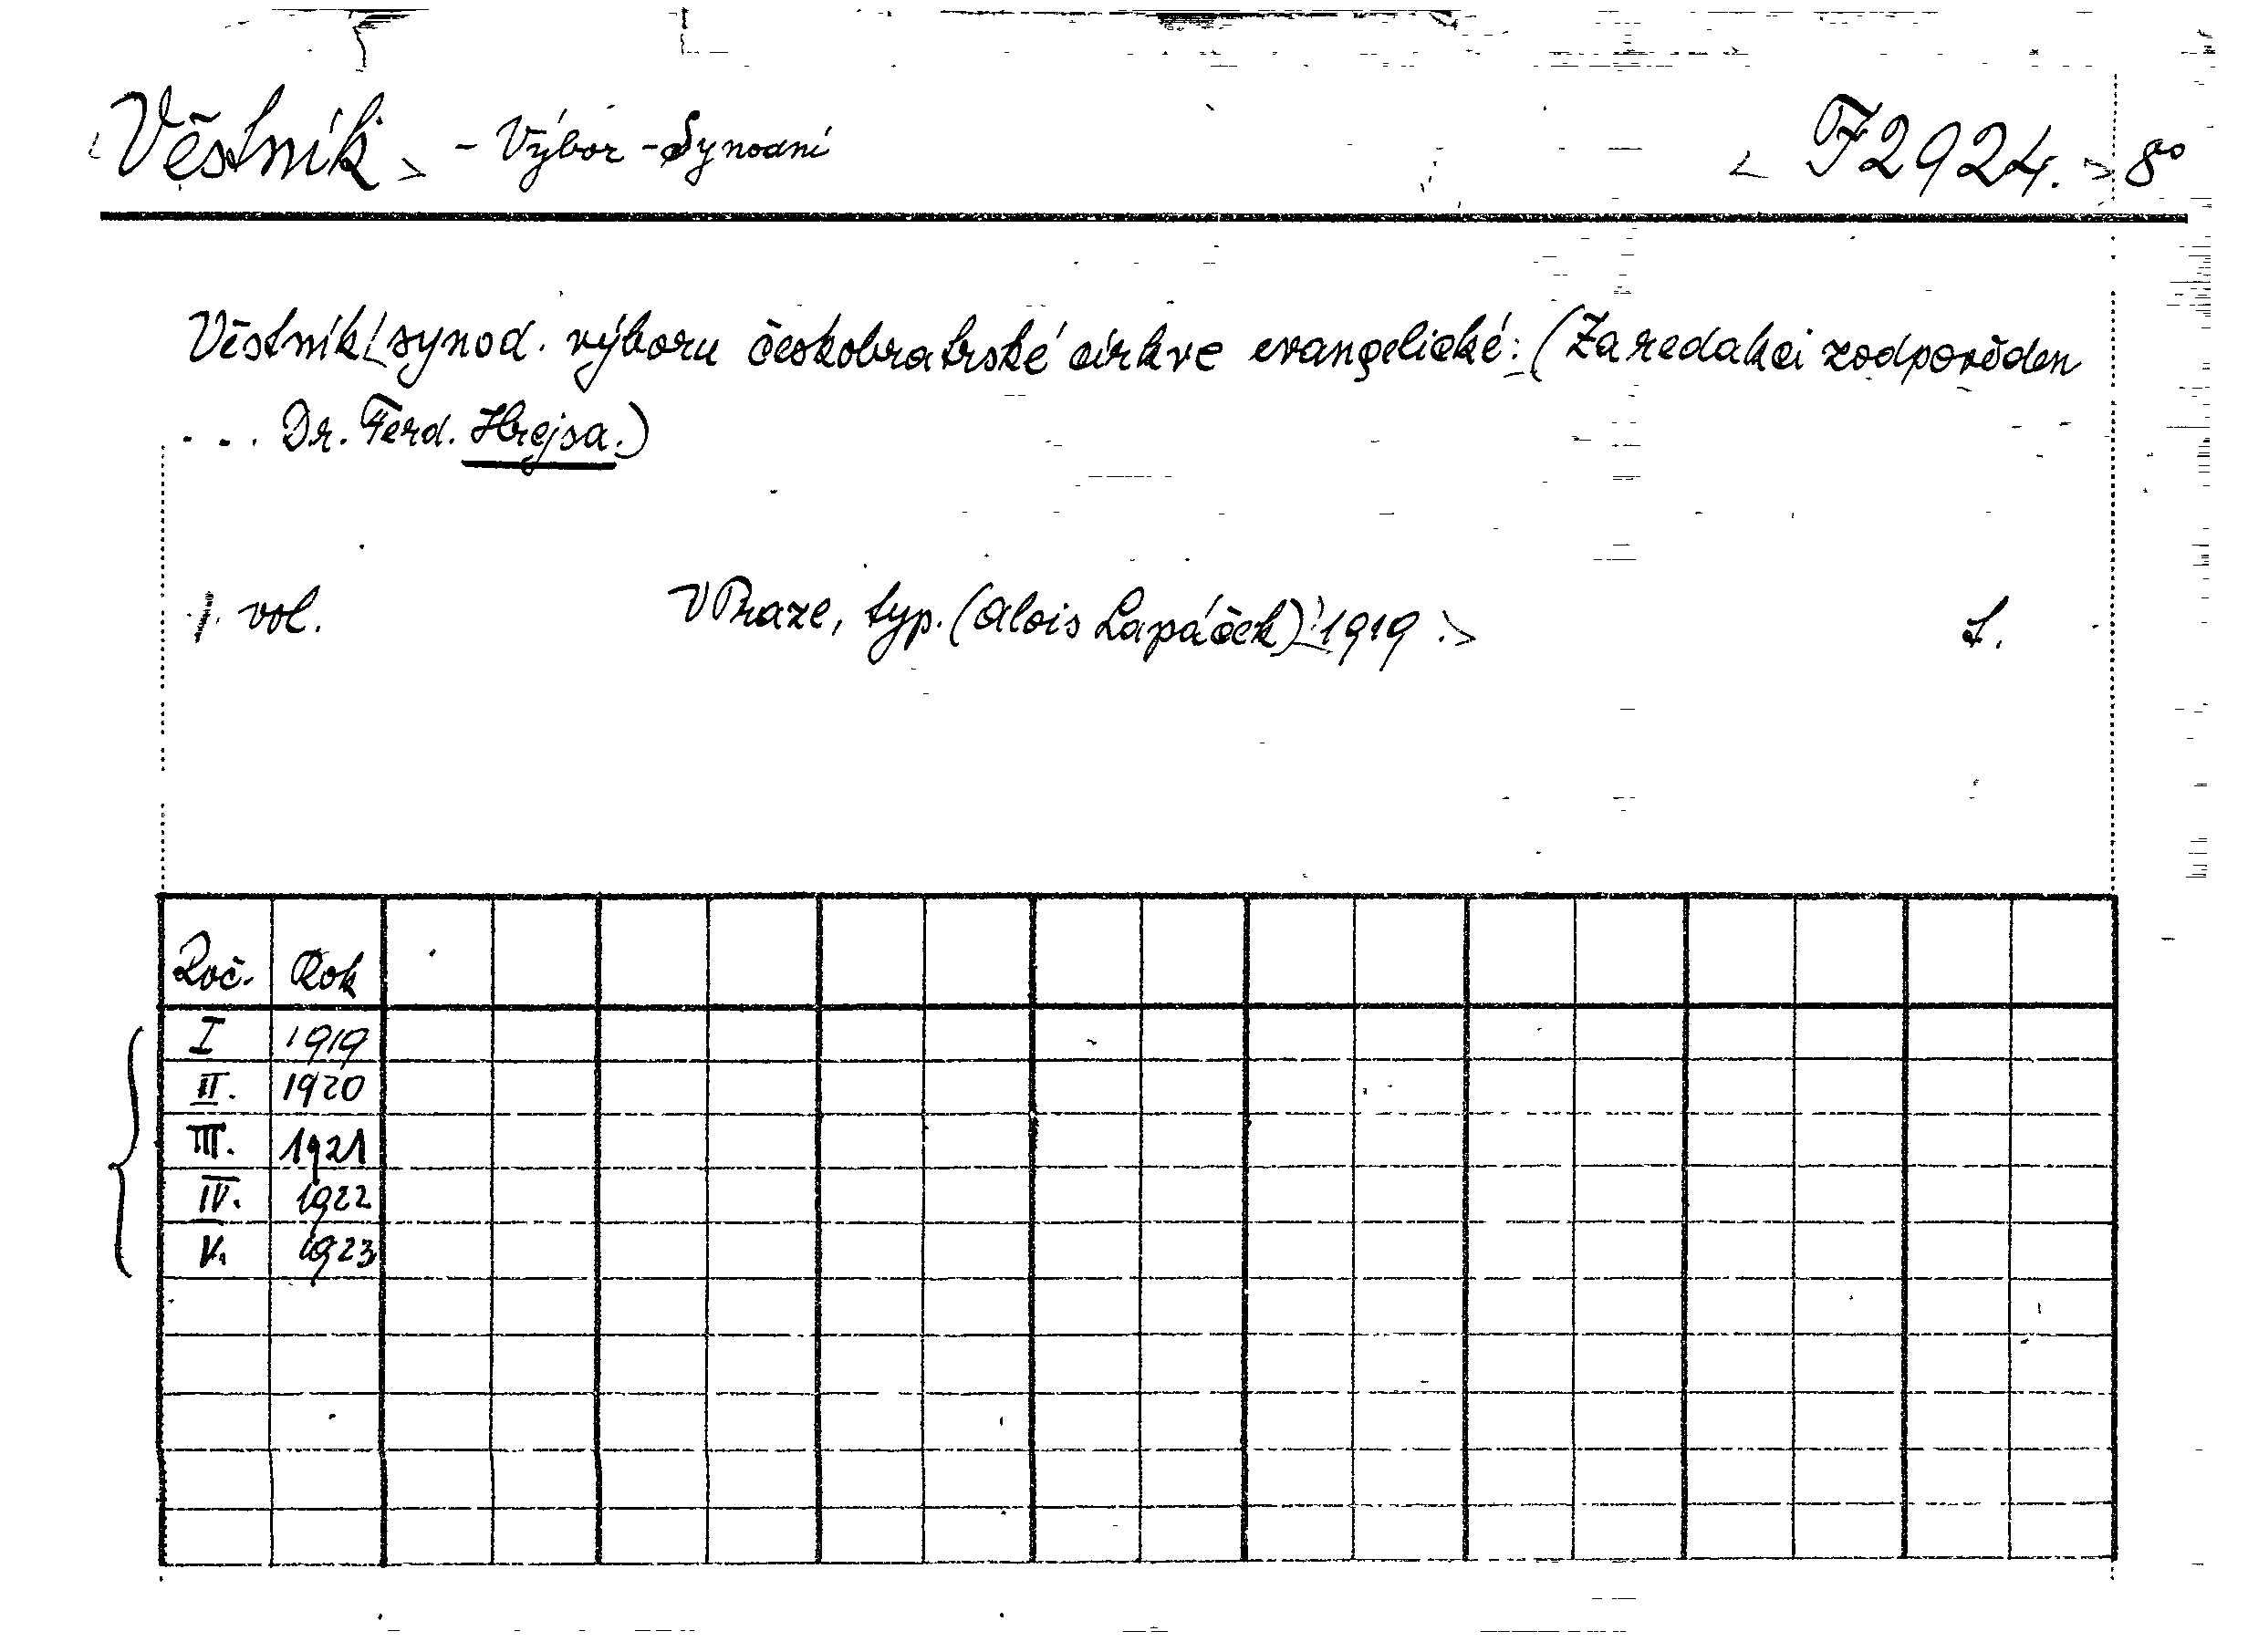 <Věstník> - Výbor - Synodní <F2924.> 8°
Věstník synod. výboru českobratrské církve evangelické: (Za redakci zodpověden
... Dr. Ferd. Hrejsa.)
1. vol. V Praze, typ. (Alois Lapáček) 1919.>
Roč. Rok
I 1919
II. 1920
III. 1921
IV. 1922
V. 1923